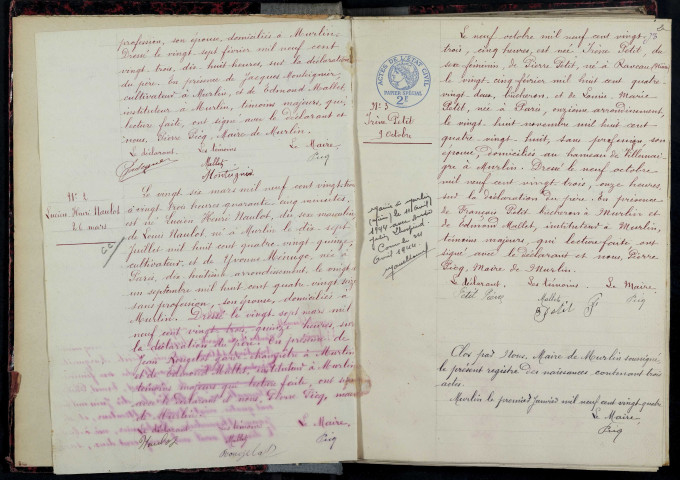 profession, son épouse, domiciliés à Murlin.
Dressé le vingt sept février mil neuf cent
vingt trois, dix huit heures, sur la déclaration
du père. En présence de Jacques Montignier,
cultivateur à Murlin, et de Edmond Mallet,
instituteur à Murlin, témoins majeurs, qui,
lecture faite, ont signé avec le déclarant et
nous, Pierre Picq, Maire de Murlin.
Le déclarant. Les témoins. Le Maire
Mallet Picq
Montignier
N° 2
Lucien Henri Naulot
26 mars
Le vingt six mars mil neuf cent vingt trois
à vingt trois heures quarante cinq minutes,
est né Lucien Henri Naulot, du sexe masculin
de Louis Naulot, né à Murlin le dix sept
juillet mil huit cent quatre vingt quinze,
cultivateur, et de Yvonne, née à
Paris, dix huitième arrondissement, le vingt
un septembre mil huit cent quatre vingt seize
sans profession, son épouse, domiciliés à
Murlin. Dressé le vingt sept mars mil
neuf cent vingt trois, quinze heures, sur
la déclaration du père. En présence de
Jean Rougelot à Murlin
et de Edmond Mallet, instituteur à Murlin
témoins majeurs qui lecture faite, ont signé
avec le déclarant et nous, Pierre Picq, maire
de Murlin.
Le déclarant. Les témoins. Le Maire,
Naulot Mallet Picq
Rougelot
73
ACTES DE L'ETAT CIVIL
PAPIER SPÉCIAL
2F
N° 3
Irène Petit
9 Octobre
Le neuf octobre mil neuf cent vingt
trois, cinq heures, est née Irène Petit, du
sexe féminin, de Pierre Petit, né à Raveau (Nièvre)
le vingt cinq février mil huit cent quatre
vingt deux, bûcheron, et de Louise Marie
Petit, née à Paris, onzième arrondissement,
le vingt huit novembre mil huit cent
quatre vingt huit, sans profession, son
épouse, domiciliés au hameau de Villemai-
gre à Murlin. Dressé le neuf octobre
mil neuf cent vingt trois, onze heures,
sur la déclaration du père. En présence
de François Petit bûcheron à Murlin et
de Edmond Mallet, instituteur à Murlin,
témoins majeurs, qui lecture faite ont
signé avec le déclarant et nous, Pierre
Picq, Maire de Murlin.
Le déclarant. Les témoins. Le Maire.
Petit Pierre Mallet Picq
Petit F
Mariée à Murlin
(Nièvre) le
1944 avec André
Avril 1944
Clos par Nous, Maire de Murlin soussigné,
le présent registre des naissances contenant trois
actes.
Murlin le premier Janvier mil neuf cent vingt quatre
Le Maire,
Picq